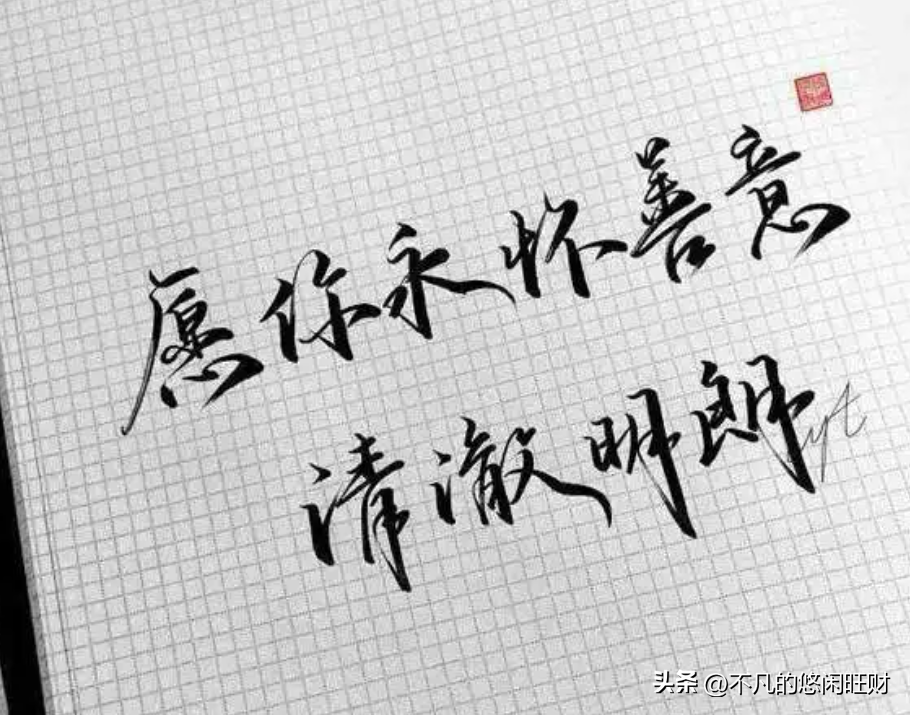 愿你永怀善意
清澈明朗
yt
头条 @不凡的悠闲旺财